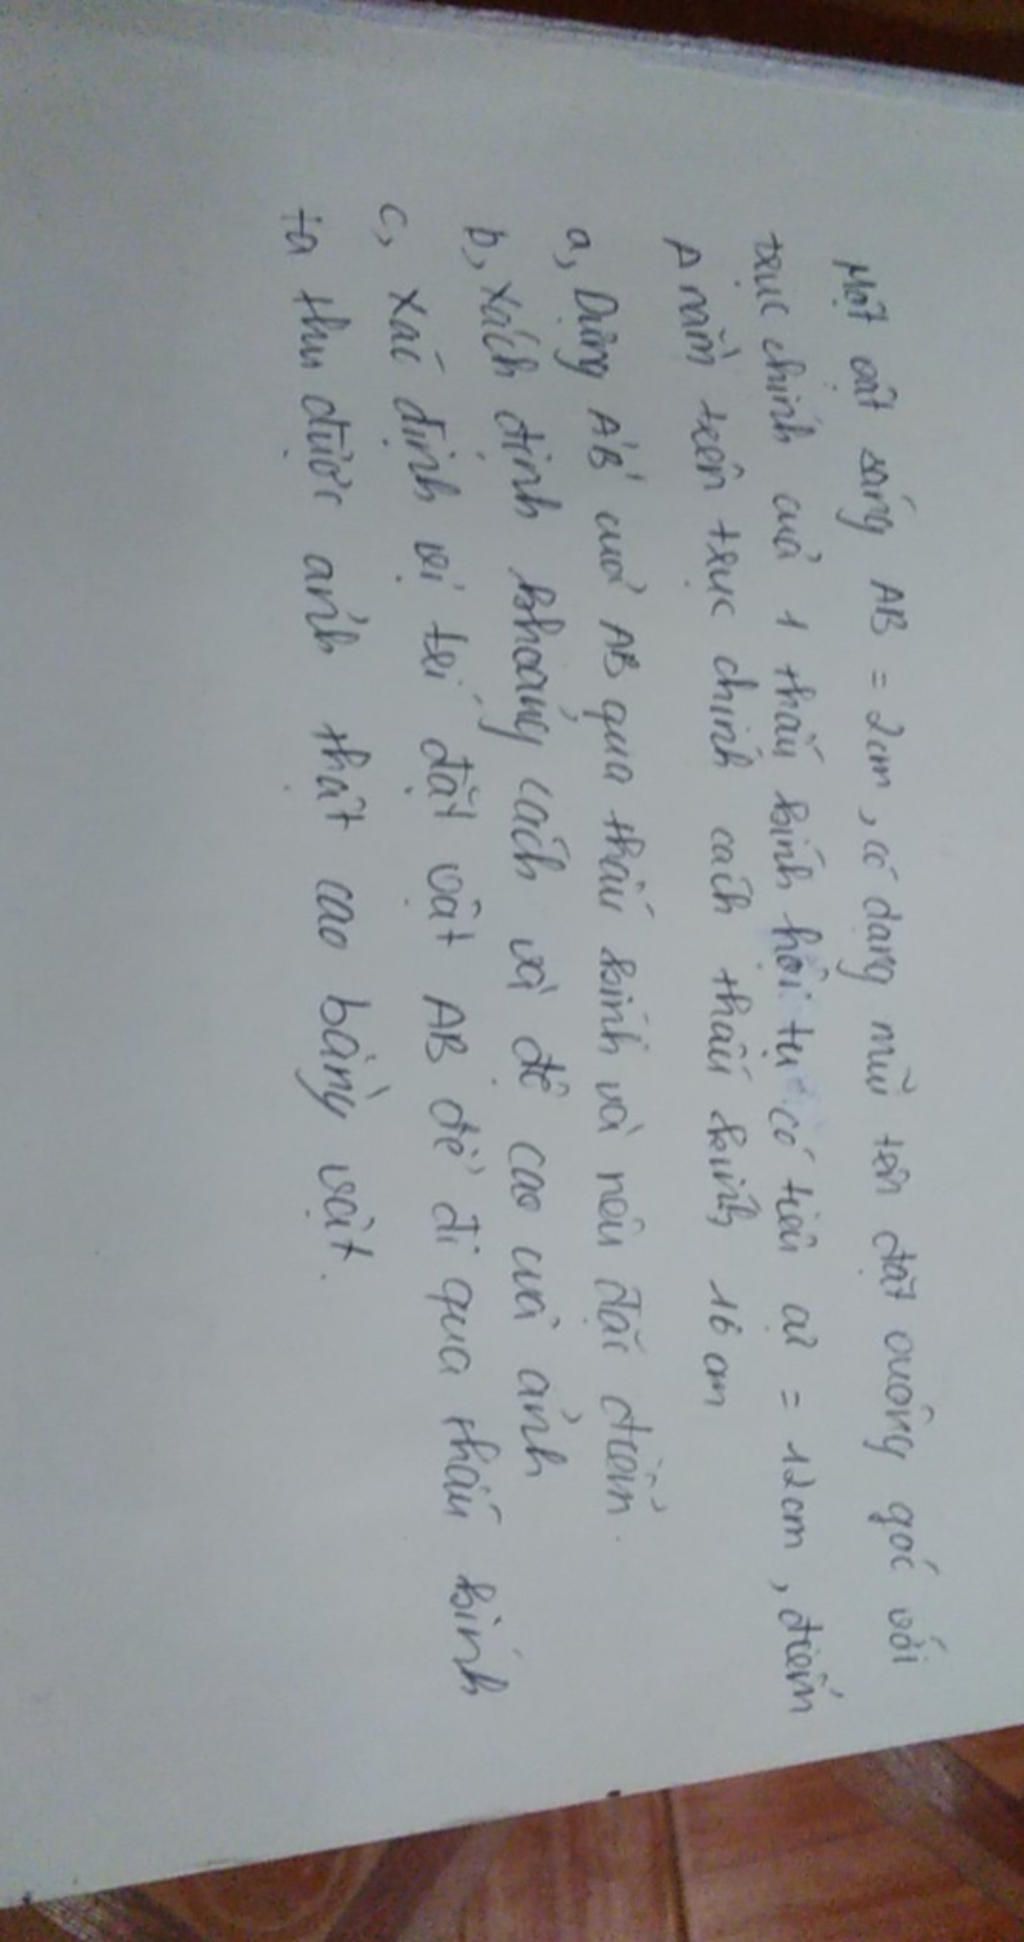 Một vật sáng AB = 2cm, có dạng mũi tên đặt vuông góc với
trục chính của 1 thấu kính hội tụ có tiêu cự = 12cm, điểm
A nằm trên trục chính cách thấu kính 16 cm
a, Dựng A'B' của AB qua thấu kính và nêu đặc điểm.
b, Xách định khoảng cách và độ cao của ảnh
c, Xác định vị trí đặt vật AB để đi qua thấu kính
ta thu được ảnh thật cao bằng vật.